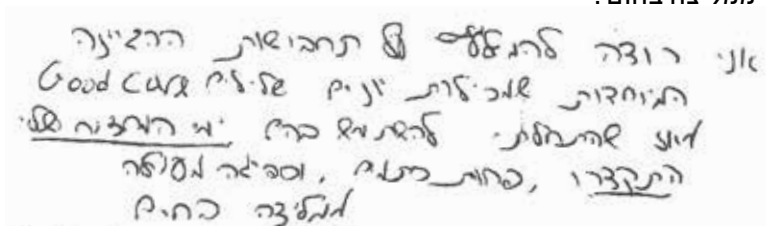 ממליצה בחום.
אני רוצה להמליץ תחבושות ההגיינה
המיוחדות שמכילות יונים שליליים Good Care
מאז שהתחלתי להשתמש בהם ימי המחזור שלי
התקצרו, פחות כתמים, וספיגה מעולה
ממליצה בחום